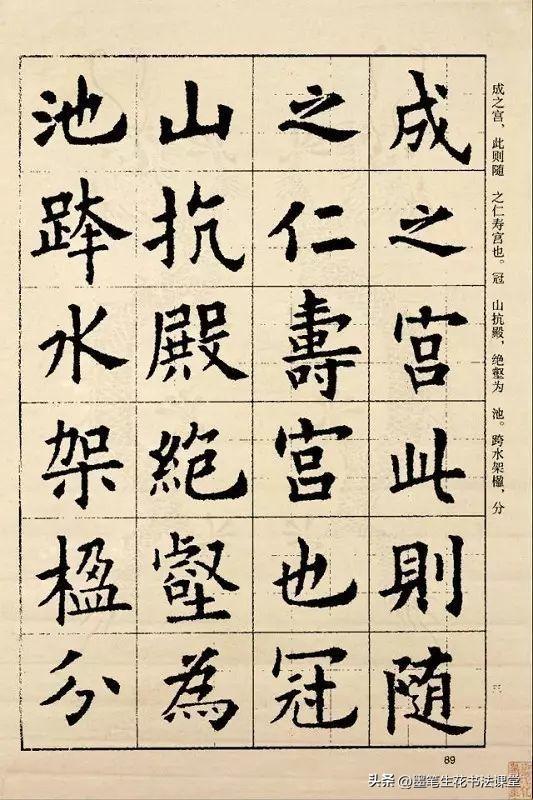 成之宫此則随
之仁壽宫也冠
山抗殿絶壑為
池跨水架楹分
成之宫，此则随 之仁寿宫也。冠 山抗殿，绝壑为 池。跨水架楹，分
89
头条@墨笔生花书法课堂